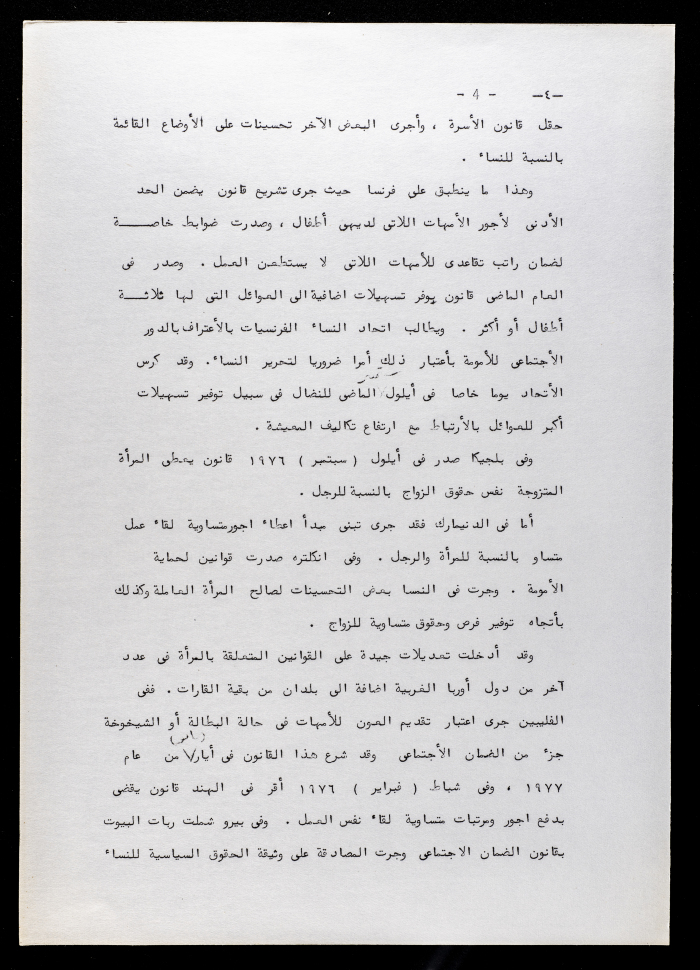 - 4 - —٤—
حقل قانون الأسرة ، وأجرى البعض الآخر تحسينات على الأوضاع القائمة
بالنسبة للنساء .
وهذا ما ينطبق على فرنسا حيث جرى تشريع قانون يضمن الحد
الأدنى لأجور الأمهات اللاتى لديهى أطفال ، وصدرت ضوابط خاصـــة
لضمان راتب تقاعدى للأمهات اللاتى لا يستطعن العمل . وصدر فى
العام الماضى قانون يوفر تسهيلات اضافية الى العوائل التى لها ثلاثـــة
أطفال أو أكثر . ويطالب اتحاد النساء الفرنسيات بالأعتراف بالدور
الأجتماعى للأمومة بأعتبار ذلك أمرا ضروريا لتحرير النساء. وقد كرس
الأتحاد يوما خاصا فى أيلول الماضى للنضال فى سبيل توفير تسهيلات
أكبر للعوائل بالأرتباط مع ارتفاع تكاليف المعيشة .
وفى بلجيكا صدر فى أيلول ( سبتمبر ) ١٩٧٦ قانون يعطى المرأة
المتزوجة نفس حقوق الزواج بالنسبة للرجل .
أما فى الدنيمارك فقد جرى تبنى مبدأ اعطاء اجورمتساوية لقاء عمل
متساو بالنسبة للمرأة والرجل . وفى انكلتره صدرت قوانين لحماية
الأمومة . وجرت فى النمسا بعض التحسينات لصالح المرأة العاملة وكذلك
بأتجاه توفير فرص وحقوق متساوية للزواج .
وقد أدخلت تعديلات جيدة على القوانين المتعلقة بالمرأة فى عدد
آخر من دول أوربا الغربية اضافة الى بلدان من بقية القارات . ففى
الفليبين جرى اعتبار تقديم العون للأمهات فى حالة البطالة أو الشيخوخة
جزء من الضمان الأجتماعى وقد شرع هذا القانون فى أيار (مايو) من عام
١٩٧٧ ، وفى شباط ( فبراير ) ١٩٧٦ أقر فى الهند قانون يقضى
بدفع اجور ومرتبات متساوية لقاء نفس العمل . وفى بيرو شملت ربات البيوت
بقانون الضمان الاجتماعى وجرت المصادقة على وثيقة الحقوق السياسية للنساء